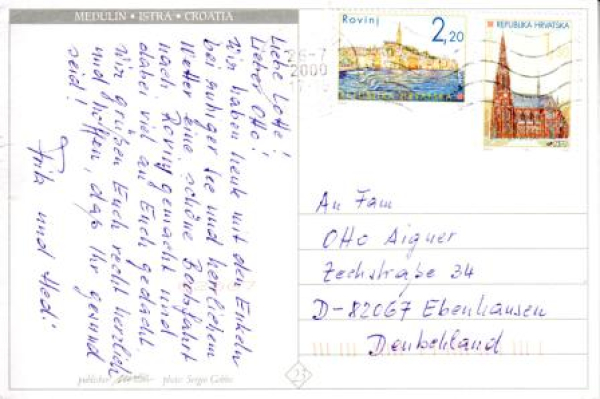 MEDULIN • ISTRA • CROATIA
Liebe Lotte!
Lieber Otto!
Wir haben heute mit den Enkeln
bei ruhiger See und herrlichem
Wetter eine schöne Bootsfahrt
nach Rovinj gemacht und
dabei viel an Euch gedacht.
Wir grüßen Euch recht herzlich
und hoffen, daß Ihr gesund
seid!
Fritz und Hedi
Rovinj
2,20
REPUBLIKA HRVATSKA
26-7
2000
An Fam
Otto Aigner
Zechstraße 34
D-82067 Ebenhausen
Deutschland
publisher
photo: Sergio Gobbo
23